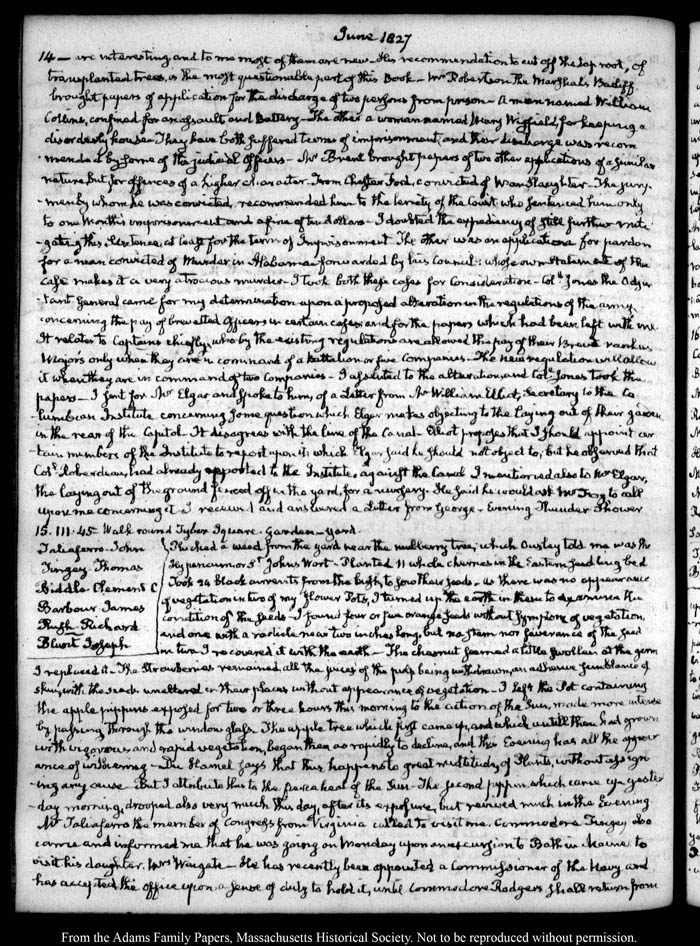 June 1827
14 — are interesting and to me most of them are new — His recommendation to cut off the tap root, of
transplanted trees, is the most questionable part of this Book — Mr Robertson the Marshals Bailiff
brought papers of application for the discharge of two persons from prison — A man named William
Collins, confined for an assault and Battery — The other a woman named Mary Wigfield, for keeping a
disorderly house — They have both suffered terms of imprisonment, and their discharge was recom
-mended by some of the judicial Officers — Mr Brent brought papers of two other applications of a similar
nature but for offences of a higher character. From Chester Ford, convicted of Man Slaughter — The Jury-
-men by whom he was convicted, recommended him to the lenity of the Court who sentenced him only
to one Month's imprisonment and a fine of ten dollars — I doubted the expediency of still further miti
-gating this Sentence, at least for the term of Imprisonment. The other was an application for pardon
for a man convicted of Murder in Alabama forwarded by his Council: whose own Statement of the
case makes it a very atrocious murder — I took both these cases for consideration — Coll Jones the Adju
-tant General came for my determination upon a proposed alteration in the regulations of the army
concerning the pay of brevetted Officers in certain cases and for the papers which had been left with me.
It relates to Captains chiefly, who by the existing regulations are allowed the pay of their Brevet rank as
Majors only when they are in command of a battalion or five Companies — The new regulation will allow
it when they are in command of two Companies — I assented to the alteration, and Coll Jones took the
papers — I sent for Mr Elgar and spoke to him, of a Letter from Mr William Elliot, Secretary to the Co
lumbian Institute concerning some question which Elgar makes objecting to the laying out of their garden
in the rear of the Capitol — It disagrees with the line of the Canal — Elliot proposes that I should appoint cer
-tain members of the Institute to report upon it which Elgar said he should not object to, but he observed that
Coll Roberdeau, had already reported to the Institute, against the Canal. I mentioned also to Mr Elgar,
the laying out of the ground fenced off in the yard, for a nursery. He said he would ask Mr Foy to call
upon me concerning it. I received and answered a Letter from George — Evening Thunder Shower
15. III. 45. Walk round Tyber Square. Garden — yard.
Taliaferro. John
Tingey. Thomas
Biddle. Clement C
Barbour James
Rush. Richard
Blunt Joseph
Plucked a weed from the yard near the mulberry tree; which Ousley told me was the
Hypericum or St John's Wort — Planted 11 whole cherries in the Eastern seedling bed
Took 24 black currents from the bush, to sow their seeds. As there was no appearance
of vegetation in two of my flower Pots, I turned up the earth in them to examine the
condition of the seeds — I found four or five orange seeds without symptom of vegetation,
and one with a radicle near two inches long, but no stem nor severance of the seed
in two. I recovered it with the earth — The chesnut seemed a little swollen at the germ
I replaced it — The Strawberries remained, all the juices of the pulp being withdrawn, an adhesive semblance of
skin, with the seeds unaltered in their places without appearance of vegetation — I left the Pot containing
the apple pippins exposed for two or three hours this morning to the action of the Sun, made more intense
by passing through the window glass. The apple tree which first came up, and which until then had grown
with vigorous and rapid vegetation, began then as rapidly to decline, and this Evening has all the appear
ance of withering — Du Hamel says that this happens to great multitudes of Plants, without assign
ing any cause — But I attribute this to the fierce heat of the Sun — The second pippin, which came up yester
day morning, drooped also very much this day, after its exposure, but revived much in the Evening
Mr Taliaferro the member of Congress from Virginia called to visit me. Commodore Tingey also
came and informed me that he was going on Monday upon an excursion to Bath in Maine to
visit his daughter, Mrs Wingate — He has recently been appointed a Commissioner of the Navy and
has accepted the office upon a sense of duty to hold it, until Commodore Rodgers shall return from
From the Adams Family Papers, Massachusetts Historical Society. Not to be reproduced without permission.